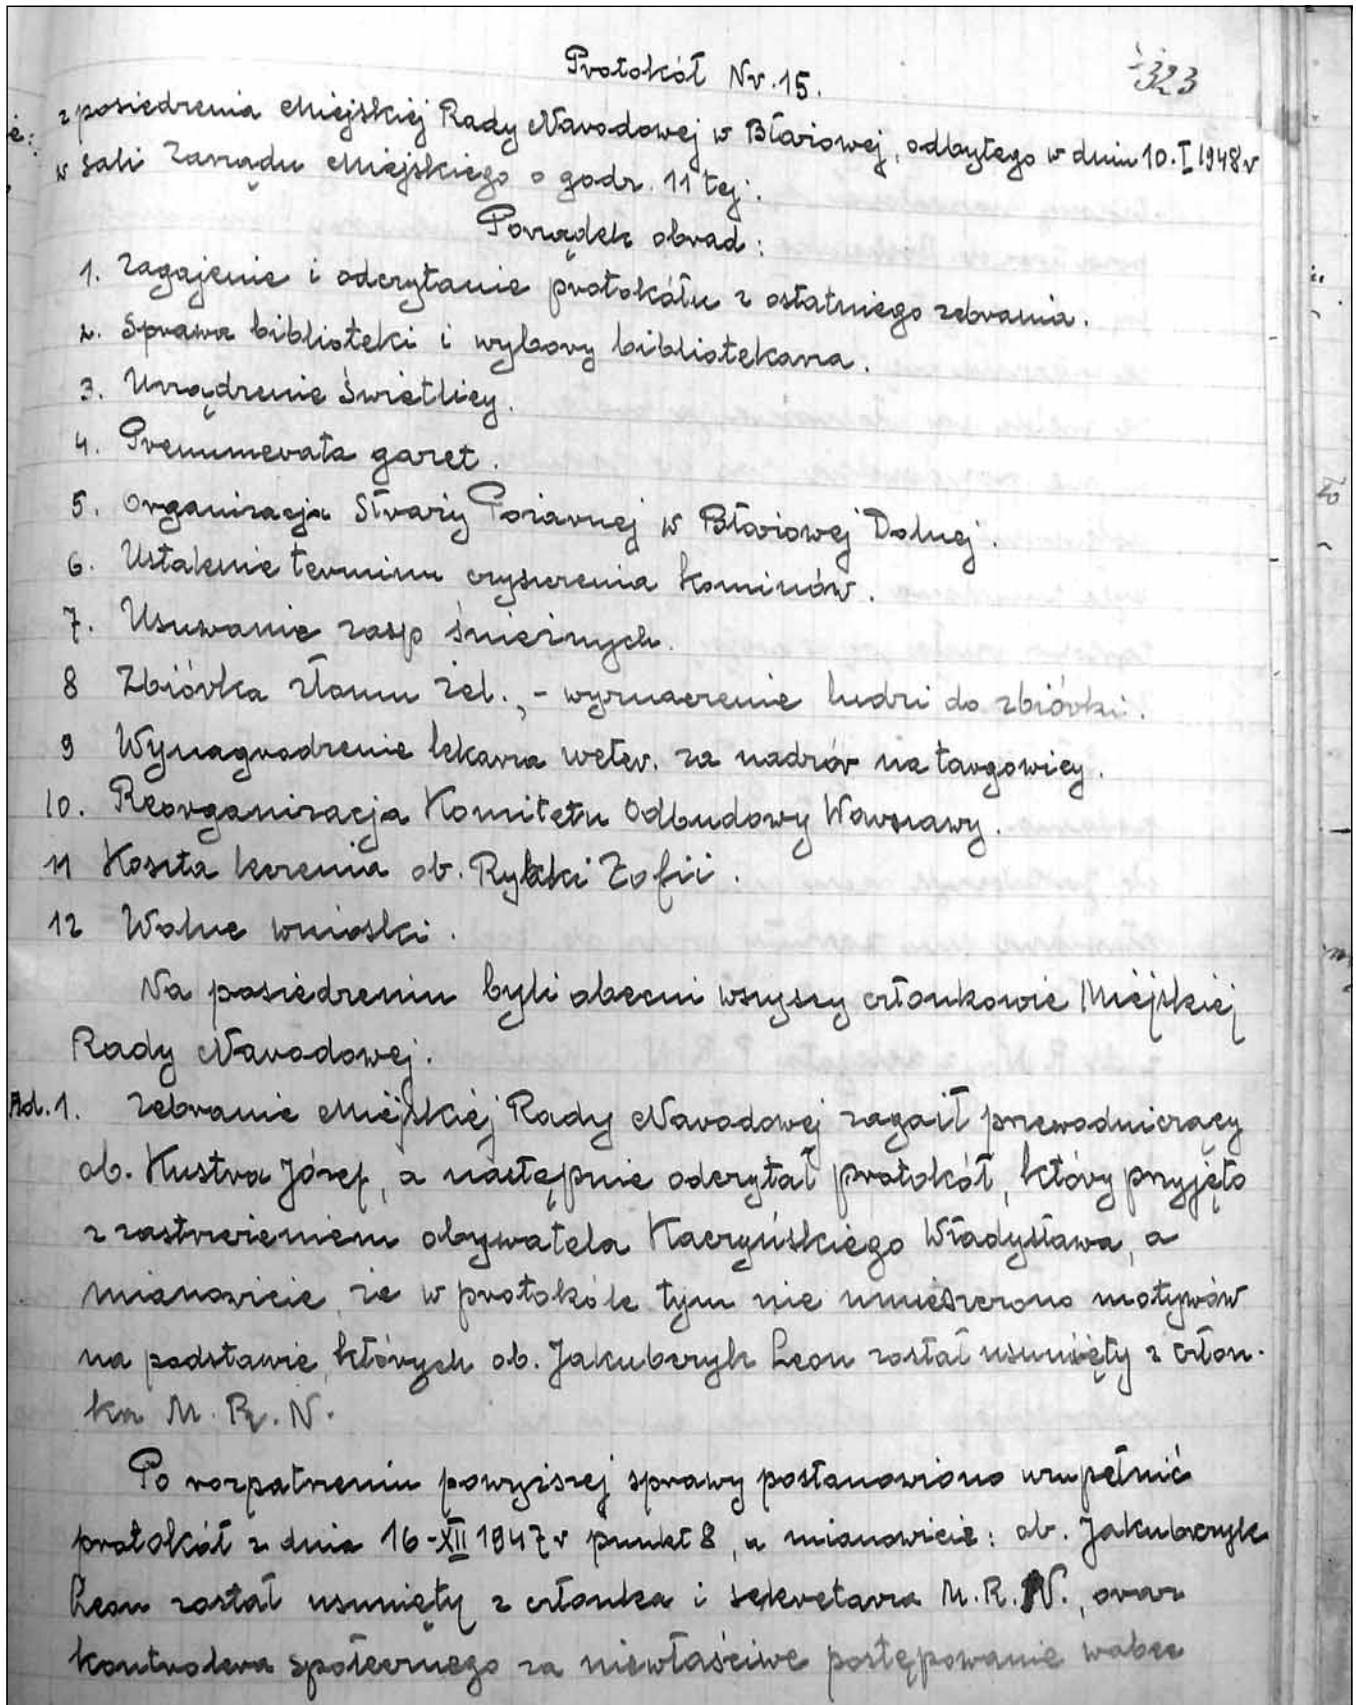 323
Protokół Nr. 15.
z posiedzenia Miejskiej Rady Narodowej w Błażowej, odbytego w dniu 10.I 1948 r
w sali Zarządu Miejskiego o godz. 11 tej.
Porządek obrad:
1. Zagajenie i odczytanie protokółu z ostatniego zebrania.
2. Sprawa biblioteki i wybory bibliotekarza.
3. Urządzenie Świetlicy.
4. Prenumerata gazet.
5. Organizacja Straży Pożarnej w Błażowej Dolnej.
6. Ustalenie terminu czyszczenia kominów.
7. Usuwanie zasp śnieżnych.
8 Zbiórka złomu żel., - wyznaczenie ludzi do zbiórki.
9 Wynagrodzenie lekarza weter. za nadzór na targowicy.
10. Reorganizacja Komitetu Odbudowy Warszawy.
11 Koszta leczenia ob. Rybki Zofii.
12 Wolne wnioski.
Na posiedzeniu byli obecni wszyscy członkowie Miejskiej
Rady Narodowej.
Ad. 1. Zebranie Miejskiej Rady Narodowej zagaił przewodniczący
ob. Kustra Józef, a następnie odczytał protokół, który przyjęto
z zastrzeżeniem obywatela Kaczyńskiego Władysława, a
mianowicie, że w protokóle tym nie umieszczono motywów
na podstawie, których ob. Jakubczyk Leon został usunięty z człon-
ka M. R. N.
Po rozpatrzeniu powyższej sprawy postanowiono uzupełnić
protokół z dnia 16-XII 1947 r punkt 8, a mianowicie: ob. Jakubczyk
Leon został usunięty z członka i sekretarza M. R. N., oraz
kontrolera społecznego za niewłaściwe postępowanie wobec